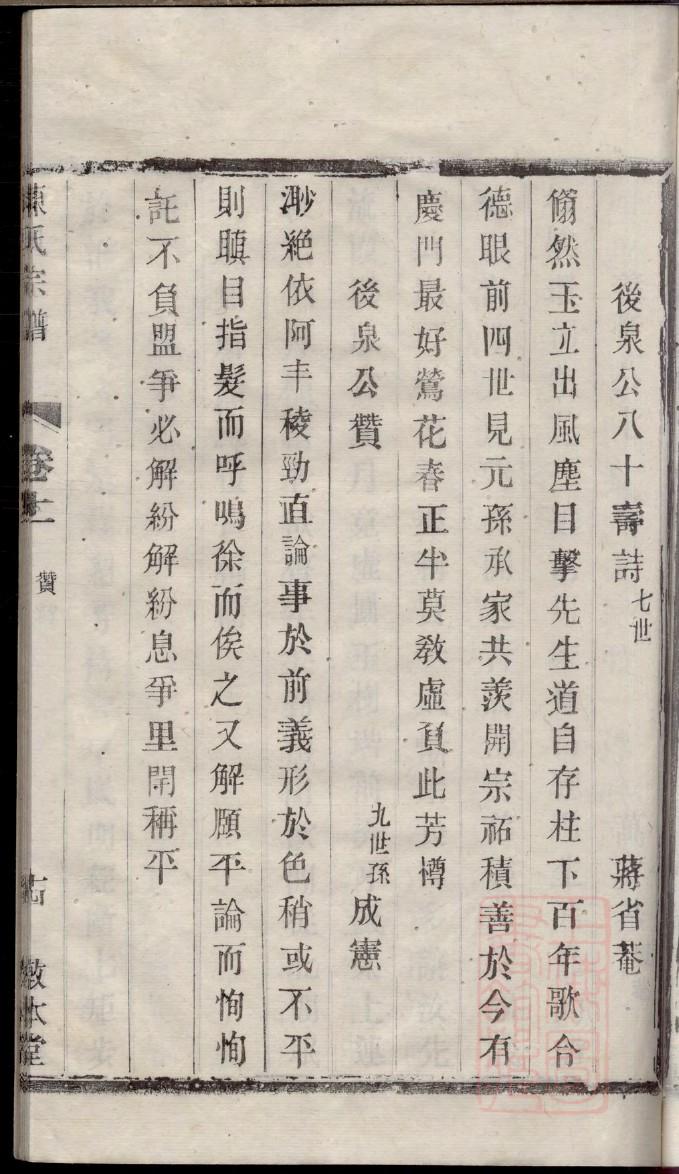 後泉公八十壽詩 七世 蔣省菴
翛然玉立出風塵目擊先生道自存柱下百年歌合
德眼前四世見元孫承家共羨開宗祏積善於今有
慶門最好鶯花春正半莫教虛負此芳樽
後泉公贊 九世孫 成憲
渺絶依阿丰稜勁直論事於前義形於色稍或不平
則瞋目指髮而呼鳴徐而俟之又解頤平論而恂恂
託不負盟爭必解紛解紛息爭里閈稱平
陳氏宗譜 卷十一 贊 敦本堂